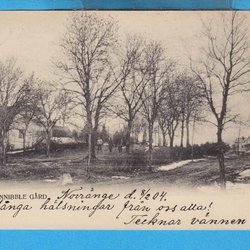 NNIBBLE GÅRD.
Norränge d. 8/4 04.
ånga hälsningar från oss alla!
Tecknar vännen